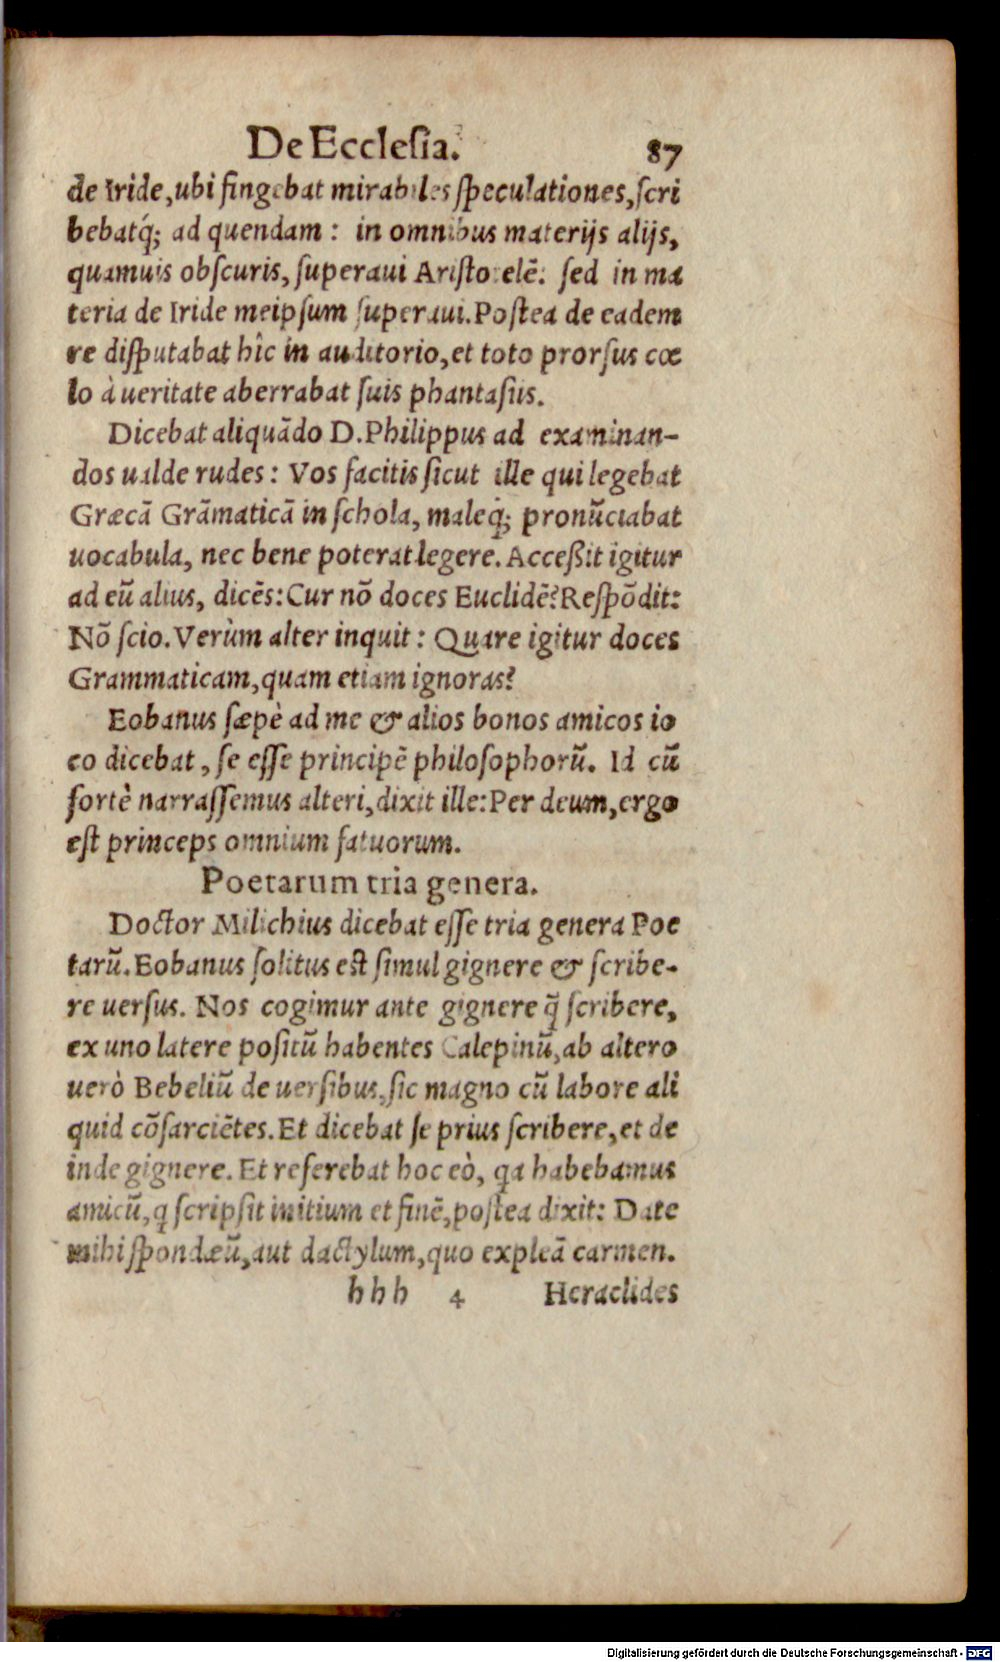 De Ecclesia. 87
de Iride, ubi fingebat mirabiles speculationes, scri
bebatq́; ad quendam : in omnibus materijs alijs,
quamuis obscuris, superaui Aristotelē. sed in ma
teria de Iride meipsum superaui. Postea de eadem
re disputabat hîc in auditorio, et toto prorsus cœ
lo à ueritate aberrabat suis phantasiis.
Dicebat aliquādo D. Philippus ad examinan-
dos ualde rudes : Vos facitis sicut ille qui legebat
Græcā Grāmaticā in schola, maleq́; pronūciabat
uocabula, nec bene poterat legere. Acceßit igitur
ad eū alius, dicēs: Cur nō doces Euclidē? Respōdit:
Nō scio. Verùm alter inquit : Quare igitur doces
Grammaticam, quam etiam ignoras?
Eobanus sæpè ad me & alios bonos amicos io
co dicebat, se esse principē philosophorū. Id cū
fortè narrassemus alteri, dixit ille: Per deum, ergo
est princeps omnium fatuorum.
Poetarum tria genera.
Doctor Milichius dicebat esse tria genera Poe
tarū. Eobanus solitus est simul gignere & scribe-
re uersus. Nos cogimur ante gignere q̃ scribere,
ex uno latere positū habentes Calepinū, ab altero
uerò Bebeliū de uersibus, sic magno cū labore ali
quid cōsarciētes. Et dicebat se prius scribere, et de
inde gignere. Et referebat hoc eò, qa habebamus
amicū, q scripsit initium et finē, postea dixit: Date
mihi spondæū, aut dactylum, quo expleā carmen.
hhh 4 Heraclides
Digitalisierung gefördert durch die Deutsche Forschungsgemeinschaft - DFG